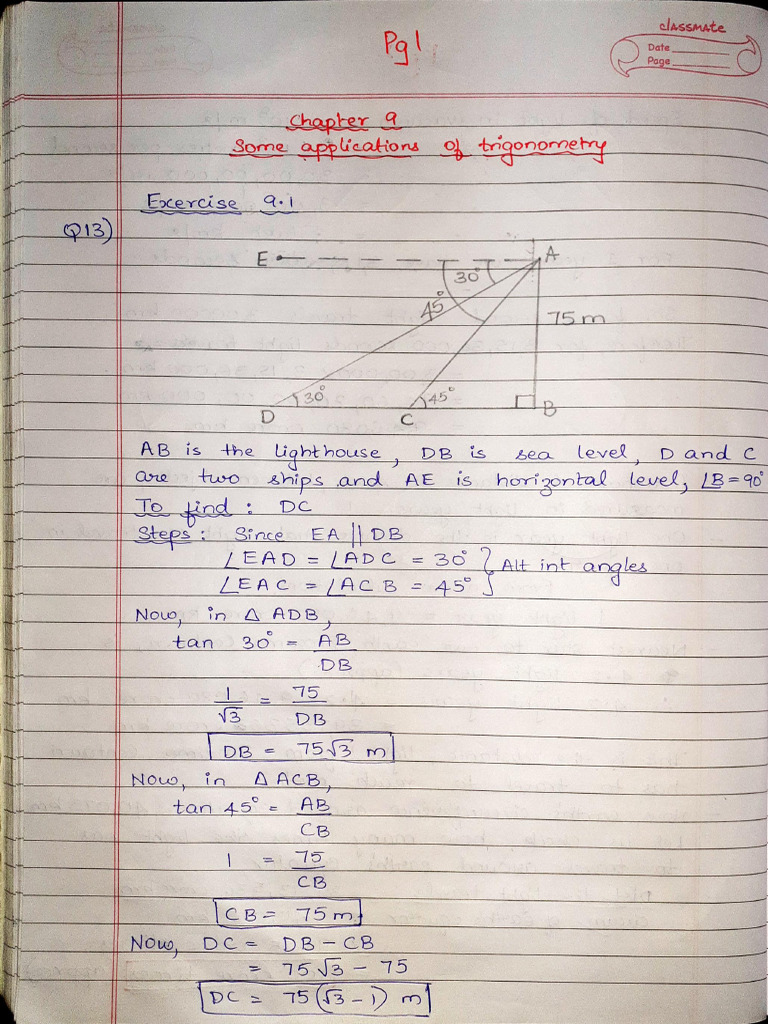 Pg1
classmate
Date
Page
Chapter 9
Some applications of trigonometry
Exercise 9.1
Q13)
E A
30°
45°
75m
30° 45°
D C B
AB is the lighthouse, DB is sea level, D and C
are two ships and AE is horizontal level, ∠B=90°
To find : DC
Steps : Since EA || DB
∠EAD = ∠ADC = 30° } Alt int angles
∠EAC = ∠ACB = 45°
Now, in △ ADB,
tan 30° = AB
DB
1 = 75
√3 DB
DB = 75√3 m
Now, in △ ACB,
tan 45° = AB
CB
1 = 75
CB
CB = 75m
Now, DC = DB − CB
= 75√3 − 75
DC = 75(√3−1) m